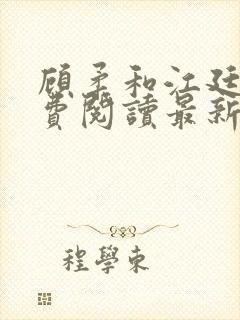 顾矛和江廷
费閱讀最新
程學東